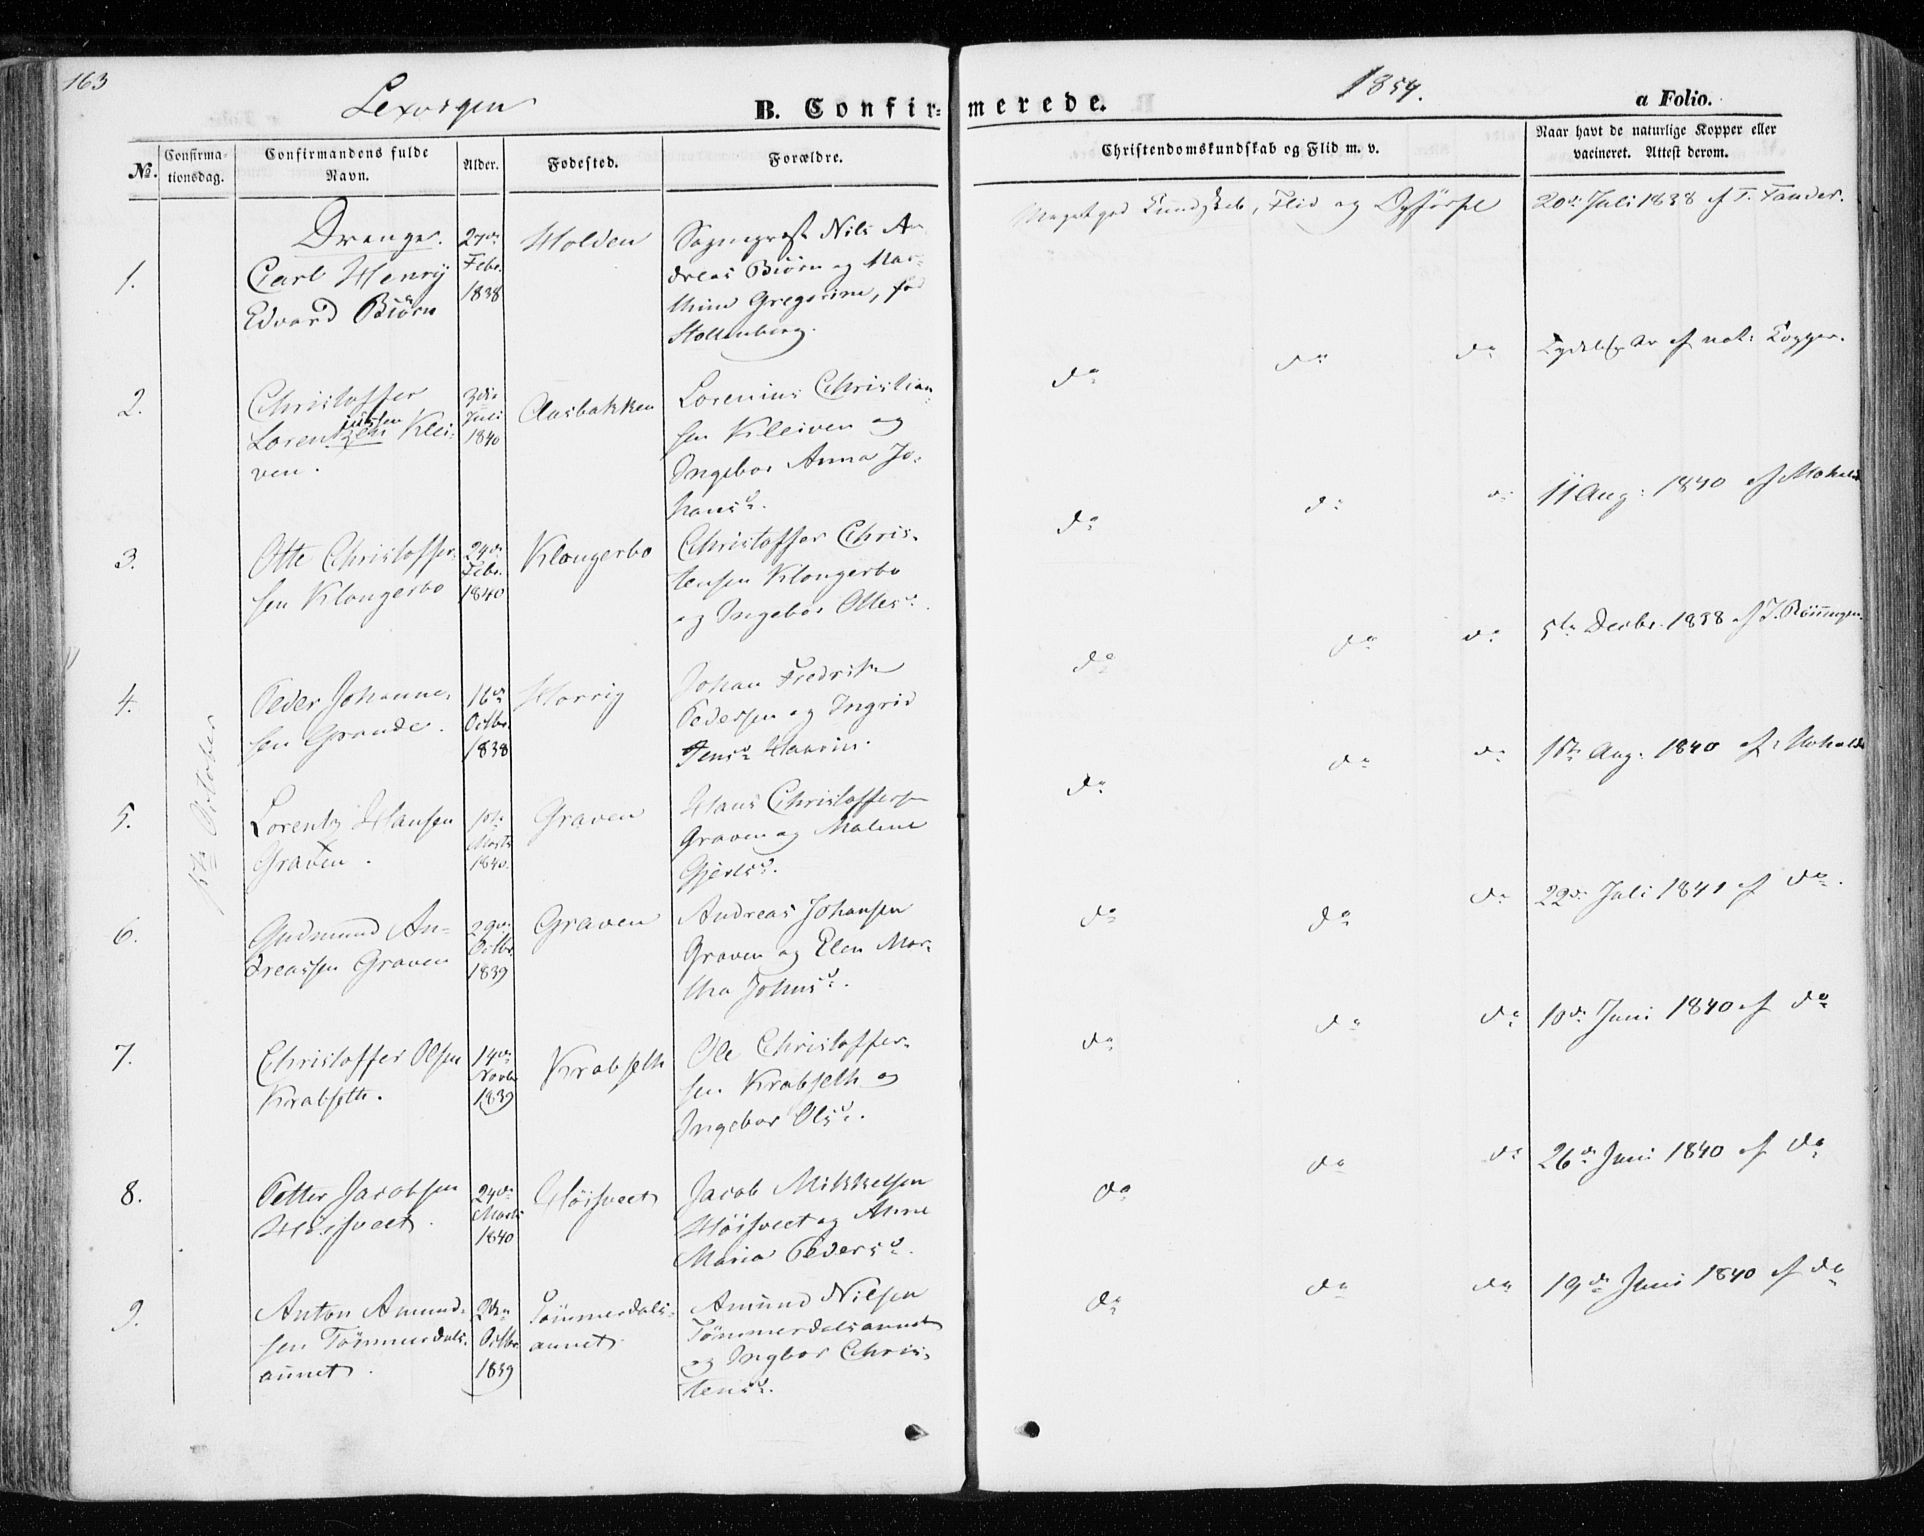 163
Lexvigen
1854.
B. Confirmerede.
a Folio.
No.
Confirma-
tionsdag.
Confirmandens fulde
Navn.
Alder.
Fødested.
Forældre.
Christendomskundskab og Flid m. v.
Naar havt de naturlige Kopper eller
vacineret. Attest derom.
15de October
Drenge.
1.
Carl Henrij
Edvard Biørn
27de
Febr.
1838
Holden
Sognepræst Nils An
dreas Biørn og Mar-
thine Gregorine, fød
Stoltenberg.
Meget god Kundskab, Flid og Opførsel
20de Juli 1838 af T. Tander.
2.
Christoffer
Lorentzen Klei-
ven.
3die
Juli
1840
Aasbakken
Lorenius Christian
sen Kleiven og
Ingebor Anna Jo-
hansd.
do do do
Tydelige Ar af nat: Kopper.
3.
Otte Christoffer-
sen Klongerbo
24de
Febr.
1840
Klongerbo
Christoffer Chris-
tensen Klongerbo
og Ingebor Ottesd.
do do do
11 Aug: 1840 af Moholdt
4.
Peder Johanne-
sen Grande.
16de
Octbr.
1838
Horvig
Johan Fredrik
Pedersen og Ingrid
Jensd. Haarin.
do do do
5te Decbr. 1838 af J. Rönningen
5.
Lorentz Hansen
Graven.
1840.
Graven
Hans Christoffersen
Graven og Malene
Gjertsd.
do do do
Aug: 1840 af Moholdt
6.
Gudmund An-
dreassen Graven
29de
Octbr
1839
Graven
Andreas Johansen
Graven og Elen Mar-
tha Johnsd.
do do do
22de Juli 1841 af do.
7.
Christoffer Olsen
Krabseth.
14de
Novbr
1839
Krabseth
Ole Christoffer-
sen Krabseth og
Ingebor Olsd.
do do do
10de Juni 1840 af do
8.
Petter Jacobsen
Höisveet.
24de
Marts
1840
Höisveet
Jacob Mikkelsen
Höisveet og Anne
Maria Pedersd.
do do do
26de Juni 1840 af do
9.
Anton Amund-
sen Tömmerdals-
aunet.
2den
Octbr.
1839
Tömmerdals-
aunet.
Amund Nilsen
Tömmerdalsaunet
og Ingbor Chris-
tensd.
do do do
19de Juni 1840 af do